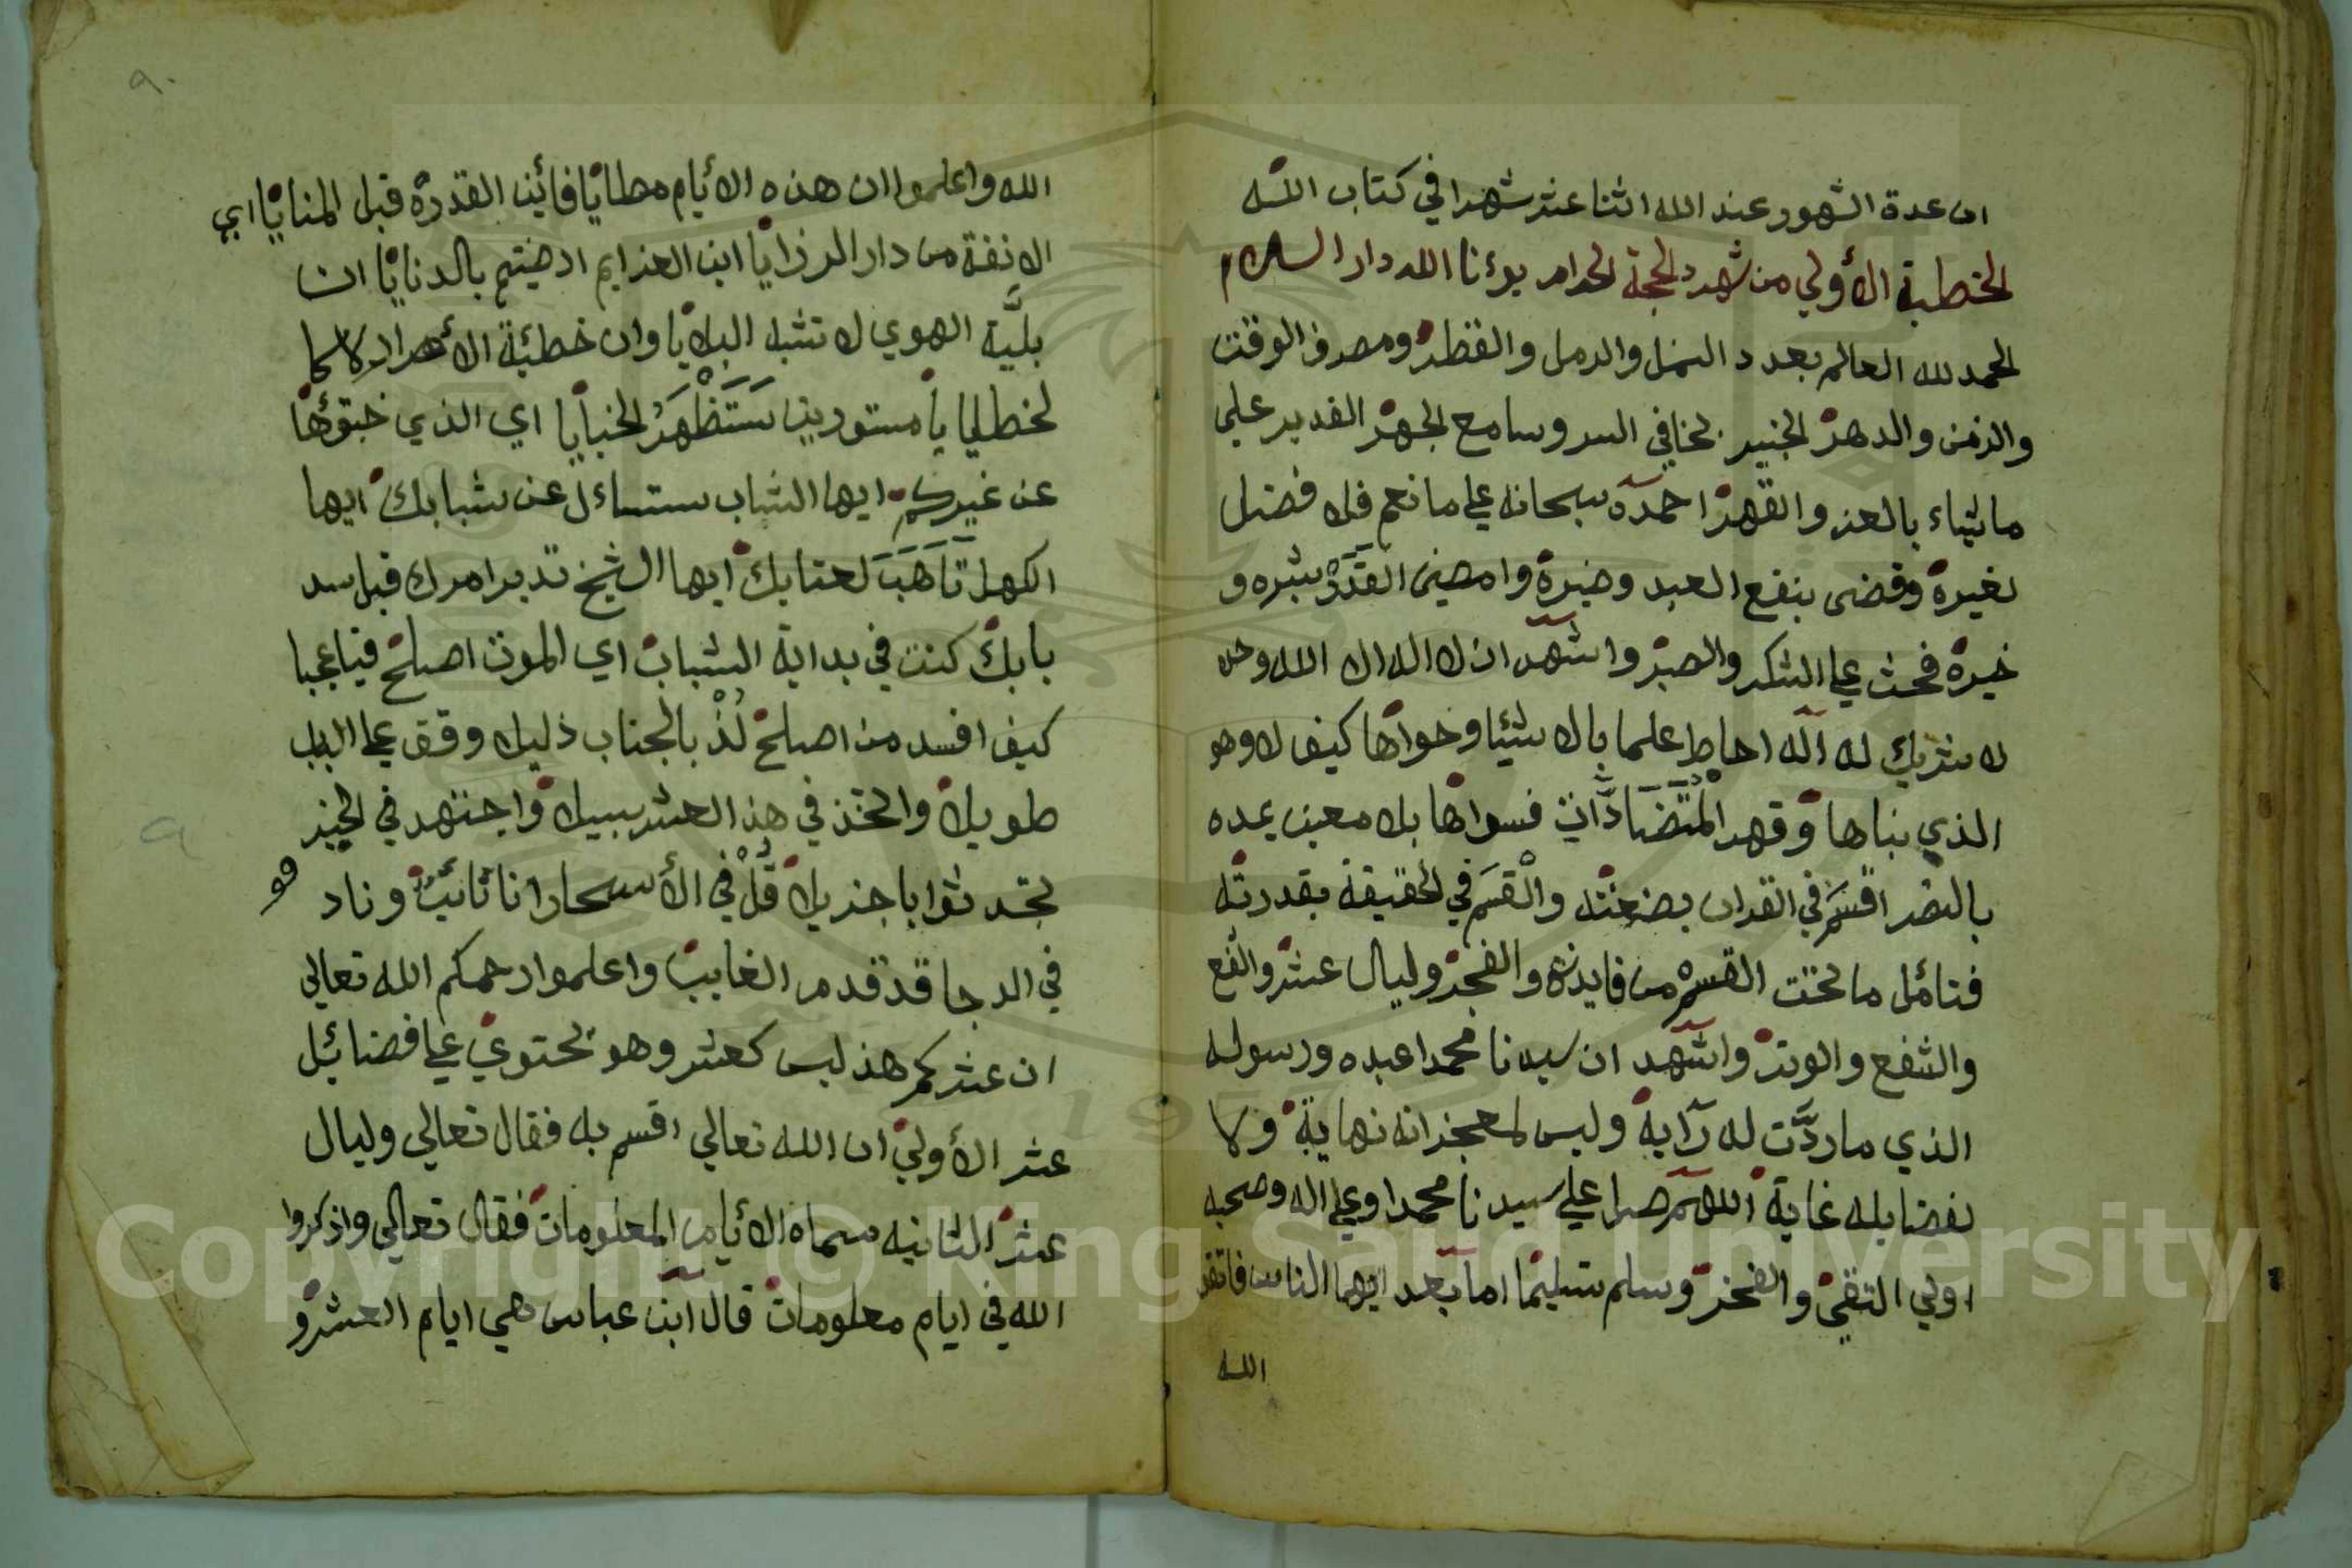 ان عدة الشهور عند الله اثنا عشر شهرا في كتاب الله
الخطبة الأولي من شهر الحجة الحرام بوئنا الله دار السلام
الحمد لله العالم بعدد النمل والرمل والقطر ومصرف الوقت
والزمن والدهر الخبير بخافي السر وسامع الجهر القدير علي
ما يشاء بالعز والقهر احمده سبحانه علي ما نعم فلا فضل
لغيره وقضى بنفع العبد وضيره وامضى القدر بشره و
خيره فحث علي الشكر والصبر واشهد ان لا اله الا الله وحده
لا شريك له اله احاط علما بالاشيا وحواها كيف لا وهو
الذي بناها وقهر المتضادات فسواها بلا معين يمده
بالنصر اقسم في القران بصنعته والقسم في الحقيقة بقدرته
فتامل ما تحت القسم من فايدته والفجر وليال عشر والفع
والشفع والوتر واشهد ان سيدنا محمدا عبده ورسوله
الذي ما ردت له راية وليس لمعجزاته نهاية ولا
لفضايله غاية اللهم صل علي سيدنا محمدا وعلي اله وصحبه
اولي التقي والفخر وسلم تسليما اما بعد ايها الناس فاتقو
الله
٩٠
الله واعلموا ان هذه الأيام مطايا فأين القدرة قبل المنايا اي
الانفة من دار الرزايا اين العزايم ارضيتم بالدنايا ان
بلية الهوي لا تشبه البلايا وان خطئة الأحرار لا كا
لخطايا يا مستورين ستظهر الخبايا اي الذي خبتوها
عن غيركم ايها الشاب ستساءل عن شبابك ايها
الكهل تأهب لعتابك ايها الشيخ تدبر امرك قبل سد
بابك كنت في بداية الشباب اي الموت اصلح فيا عجبا
كيف افسد من اصلح لذ بالجناب ذليلا وقف علي الباب
طويلا واتخذ في هذ العشر سبيلا واجتهد في الخير
تجد ثوابا جزيلا قل في الأسحار انا تائب وناد
في الدجا قد قدم الغايب واعلموا رحمكم الله تعالي
ان عشركم هذ ليس كعشر وهو يحتوي علي فضائل
عشر الأولي ان الله تعالي اقسم به فقال تعالي وليال
عشر الثانيه سماه الأيام المعلومات فقال تعالي واذكروا
الله في ايام معلومات قال ابن عباس هي ايام العشر و
Copyright © King Saud University